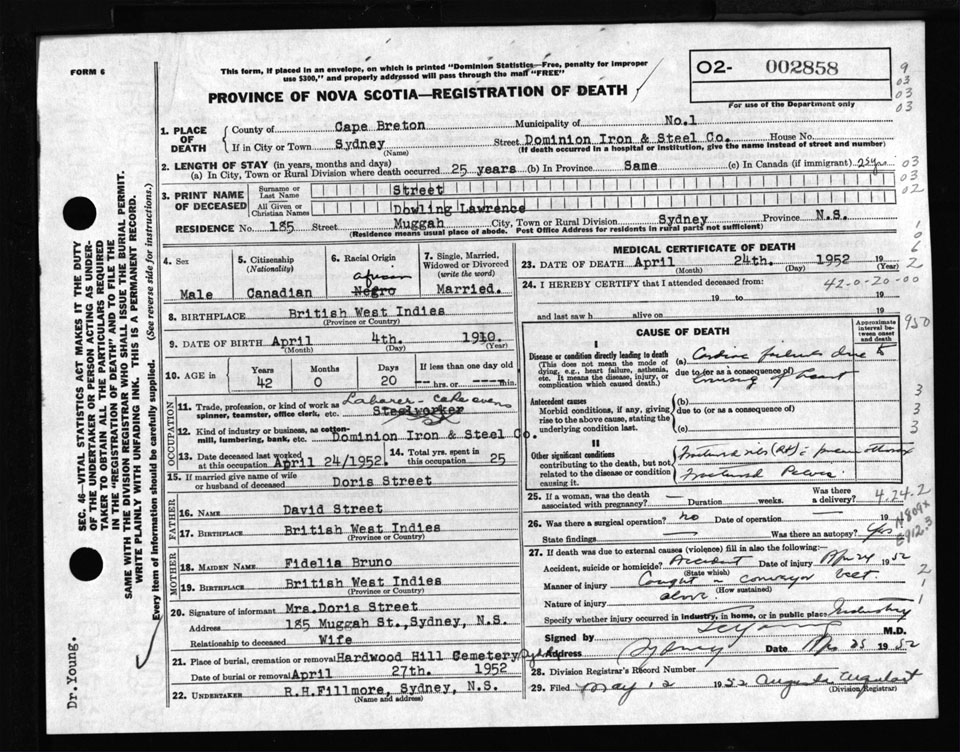 FORM 6
This form, if placed in an envelope, on which is printed "Dominion Statistics—Free, penalty for improper
use $300," and properly addressed will pass through the mail "FREE"
O2- 002858
For use of the Department only
PROVINCE OF NOVA SCOTIA—REGISTRATION OF DEATH
9
03
03
03
1. PLACE OF DEATH County of Cape Breton Municipality of No.1
If in City or Town Sydney (Name) Street Dominion Iron & Steel Co. House No.
(If death occurred in a hospital or institution, give the name instead of street and number)
2. LENGTH OF STAY (in years, months and days)
(a) In City, Town or Rural Division where death occurred 25 years (b) In Province Same (c) In Canada (if immigrant) 25 yrs 03
03
02
3. PRINT NAME OF DECEASED Surname or Last Name Street
All Given or Christian Names Dowling Lawrence
RESIDENCE No. 185 Street Muggah City, Town or Rural Division Sydney Province N.S.
(Residence means usual place of abode. Post Office Address for residents in rural parts not sufficient)
4. Sex Male
5. Citizenship (Nationality) Canadian
6. Racial Origin African Negro
7. Single, Married, Widowed or Divorced (write the word) Married.
8. BIRTHPLACE British West Indies
(Province or Country)
9. DATE OF BIRTH April 4th. 1910.
(Month) (Day) (Year)
10. AGE in Years Months Days If less than one day old
42 0 20 --- hrs. or --- min.
OCCUPATION
11. Trade, profession, or kind of work as spinner, teamster, office clerk, etc. Laborer - coke ovens Steelworker
12. Kind of industry or business, as cotton-mill, lumbering, bank, etc. Dominion Iron & Steel Co.
13. Date deceased last worked at this occupation April 24/1952. 14. Total yrs. spent in this occupation 25
15. If married give name of wife or husband of deceased Doris Street
FATHER
16. NAME David Street
17. BIRTHPLACE British West Indies
(Province or Country)
MOTHER
18. MAIDEN NAME Fidelia Bruno
19. BIRTHPLACE British West Indies
(Province or Country)
20. Signature of informant Mrs. Doris Street
Address 185 Muggah St., Sydney, N.S.
Relationship to deceased Wife
21. Place of burial, cremation or removal Hardwood Hill Cemetery
Date of burial or removal April 27th. 1952
22. UNDERTAKER R.H.Fillmore, Sydney, N.S.
(Name and address)
MEDICAL CERTIFICATE OF DEATH
23. DATE OF DEATH April 24th. 1952 19
(Month) (Day) (Year)
24. I HEREBY CERTIFY that I attended deceased from: 42-0-20-00
19 to 19
and last saw h alive on 19
CAUSE OF DEATH
Approximate interval between onset and death
950
I
Disease or condition directly leading to death (a) Cardiac failure due to
(This does not mean the mode of dying, e.g., heart failure, asthenia, etc. It means the disease, injury, or complication which caused death.)
due to (or as a consequence of) bruising of heart
Antecedent causes
Morbid conditions, if any, giving rise to the above cause, stating the underlying condition last.
(b)
due to (or as a consequence of)
(c)
3
3
3
II
Other significant conditions contributing to the death, but not related to the disease or condition causing it.
Fractured ribs (Rt)
Fractured Pelvis
25. If a woman, was the death associated with pregnancy? — Duration weeks. Was there a delivery? 4-24-2
26. Was there a surgical operation? no Date of operation — 19
State findings Was there an autopsy? Yes
27. If death was due to external causes (violence) fill in also the following:—
Accident, suicide or homicide? Accident Date of injury Apr 24 1952
(State which)
Manner of injury Caught in conveyor belt
(How sustained)
Nature of injury above.
Specify whether injury occurred in industry, in home, or in public place Industry
2
1
1
Signed by M.D.
Address Sydney Date Apr 25 1952
28. Division Registrar's Record Number
29. Filed May 12 1952 Urquhart
(Division Registrar)
SEC. 46—VITAL STATISTICS ACT MAKES IT THE DUTY
OF THE UNDERTAKER OR PERSON ACTING AS UNDER-
TAKER TO OBTAIN ALL THE PARTICULARS REQUIRED
IN THE "REGISTRATION OF DEATH" AND TO FILE THE
SAME WITH THE DIVISION REGISTRAR WHO SHALL ISSUE THE BURIAL PERMIT.
WRITE PLAINLY WITH UNFADING INK. THIS IS A PERMANENT RECORD.
Every item of information should be carefully supplied. (See reverse side for instructions.)
Dr. Young.